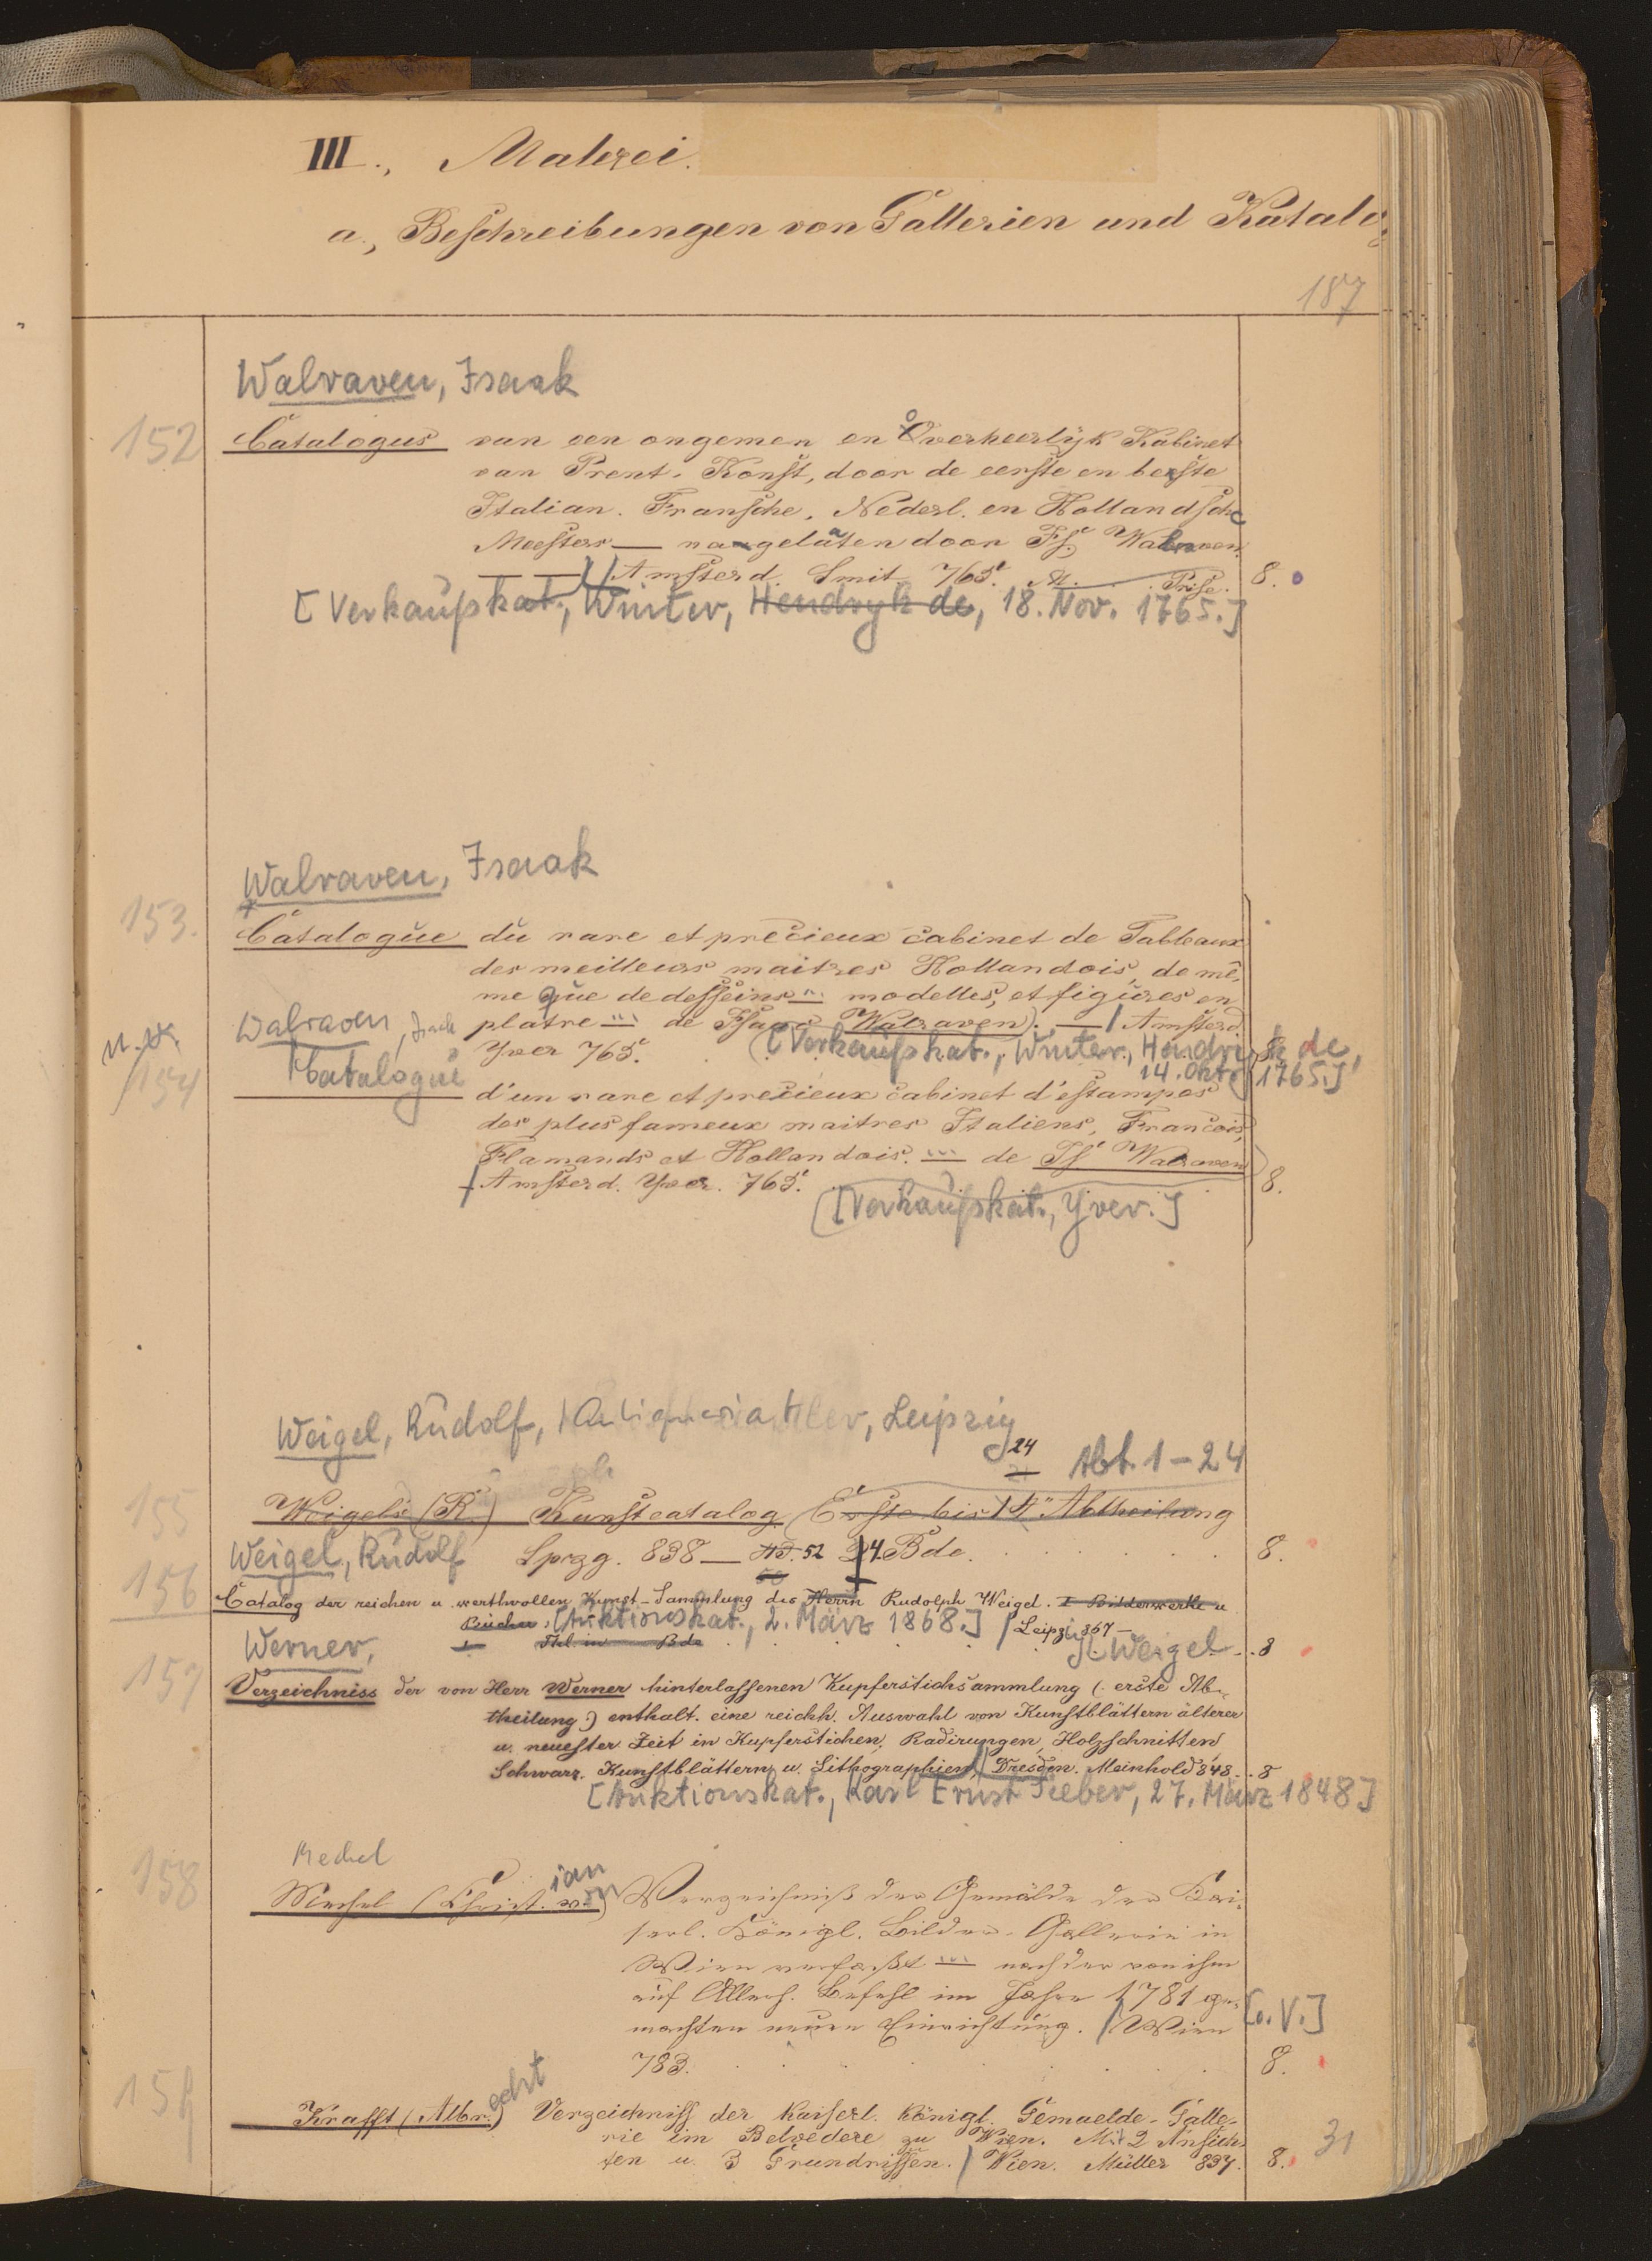 III., Malerei.
a., Beschreibungen von Gallerien und Katalo
187
Walraven, Isaak
152 Catalogus van een ongemen en Overheerlyk Kabinet
van Prent-Konst, door de eerste en beste
Italian. Fransche, Nederl. en Hollandsche
Meesters — nagelaten door Is. Walraven.
Amsterd. Smit 765. M. Prise. 8.
[Verkaufskat., Winter, Hendryk de, 18. Nov. 1765.]
Walraven, Isaak
153. Catalogue du rare et precieux cabinet de Tableaux
des meilleurs maitres Hollandois, de mê-
me que de desseins ... modelles, et figures en
Walraven, Isaak platre ... de Isaac Walraven). — Amsterd.
Yver 765. [Verkaufskat., Winter, Hendryk de,
14. Okt. 1765.]
154 Catalogue
d'un rare et precieux cabinet d'estampes
des plus fameux maitres Italiens, Francois,
Flamands et Hollandois. ... de Is. Walraven
Amsterd. Yver. 765. 8.
[Verkaufskat., Yver.]
Weigel, Rudolf, Antiquariat, Leipzig
24 Abt. 1-24
155 Weigels (R.) Kunstcatalog (Erste bis Abtheilung
Weigel, Rudolf Lpzg. 838 — 52 24 Bde. 8.
156 Catalog der reichen u. werthvollen Kunst-Sammlung des Herrn Rudolph Weigel. I Bilderwerke u
Bücher. [Auktionskat., 2. März 1868.] Leipzig 867 —
Werner, Thl. in Bde Weigel 8
157 Verzeichniss der von Herr Werner hinterlassenen Kupferstichsammlung (erste Ab-
theilung) enthalt. eine reichh. Auswahl von Kunstblättern älterer
u. neuester Zeit in Kupferstichen, Radirungen, Holzschnitten,
Schwarz. Kunstblättern u. Lithographien, Dresden. Meinhold 848. 8
[Auktionskat., Karl Ernst Sieber, 27. März 1848]
Mechel
158 Mechel (Christian von) Verzeichniß der Gemälde der Kai-
serl. Königl. Bilder-Gallerie in
Wien verfaßt ... nach der von ihm
auf Allerh. Befehl im Jahre 1781 ge-
machten neuen Einrichtung. Wien [o. V.]
783. 8.
159 Krafft (Albrecht) Verzeichniss der Kaiserl. Königl. Gemaelde-Galle-
rie im Belvedere zu Wien. Mit 2 Ansich-
ten u. 3 Grundrissen. Wien. Müller 837. 8. 31